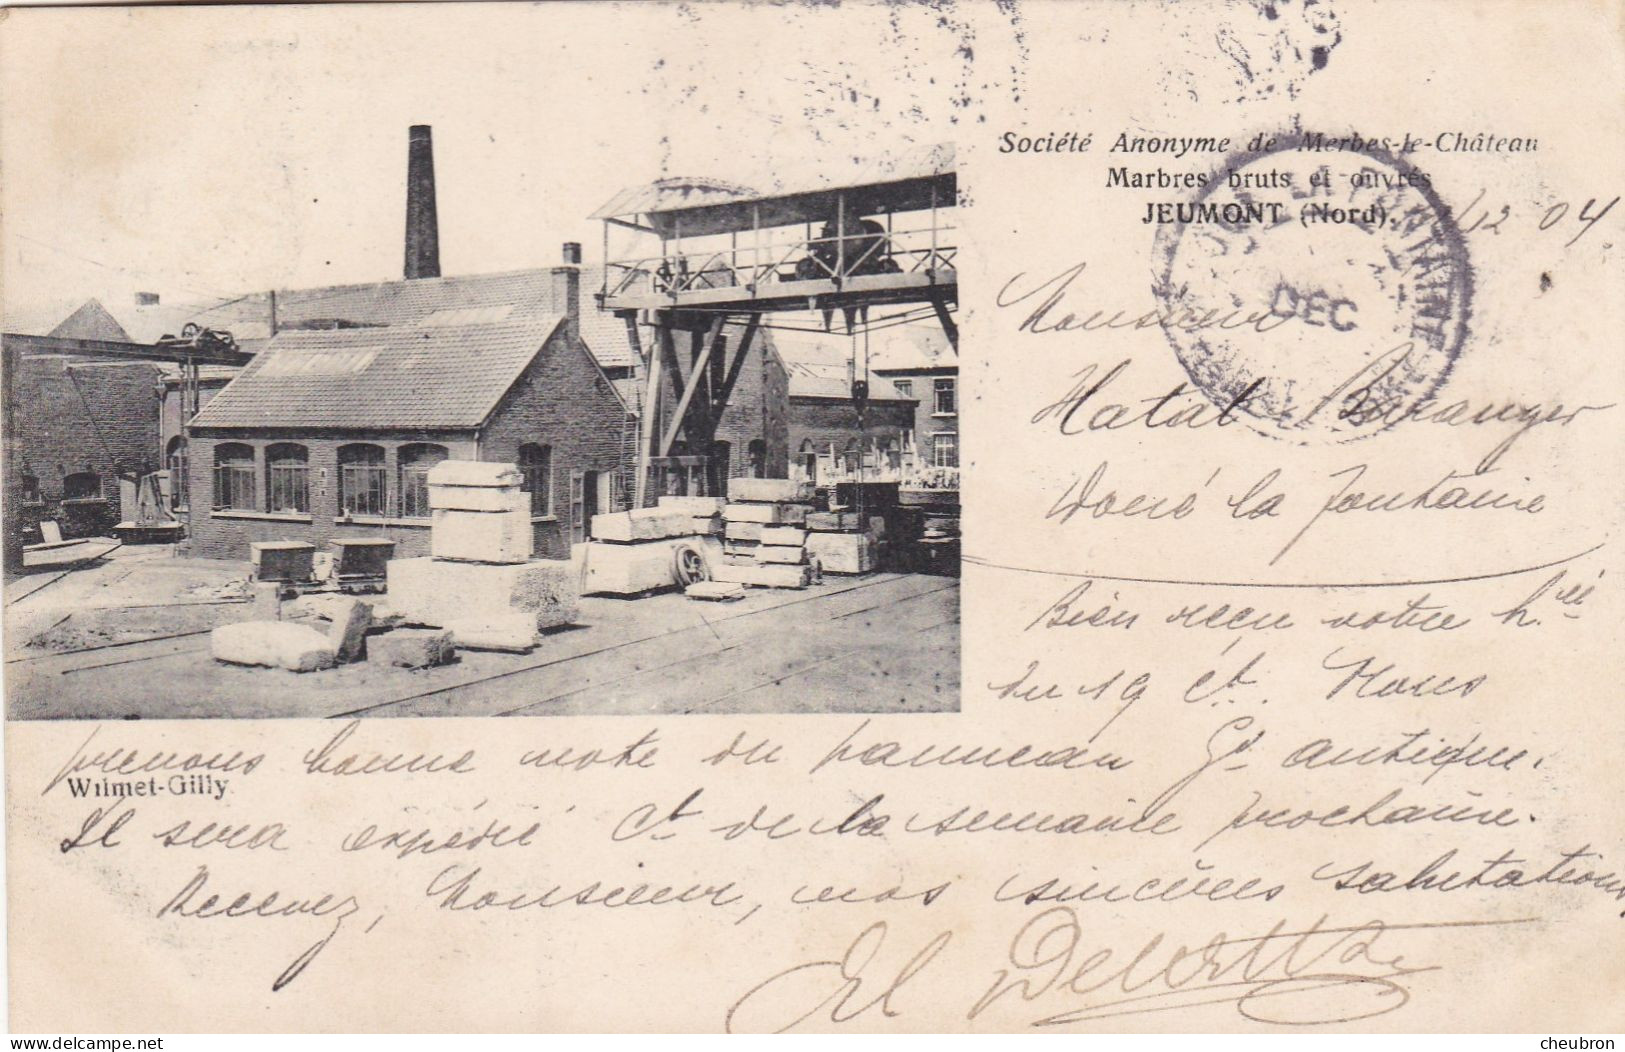 Société Anonyme de Merbes-le-Château
Marbres bruts et ouvrés
JEUMONT (Nord).
/12 04
DEC
Monsieur
Hatat Béranger
Doué la Fontaine
Bien reçu votre h.
du 19 ct. Nous
prenons bonne note du panneau Gd antique.
Wilmet-Gilly
Il sera expédié ct de la semaine prochaine.
Recevez, Monsieur, nos sincères salutations,
cheubron
www.delcampe.net